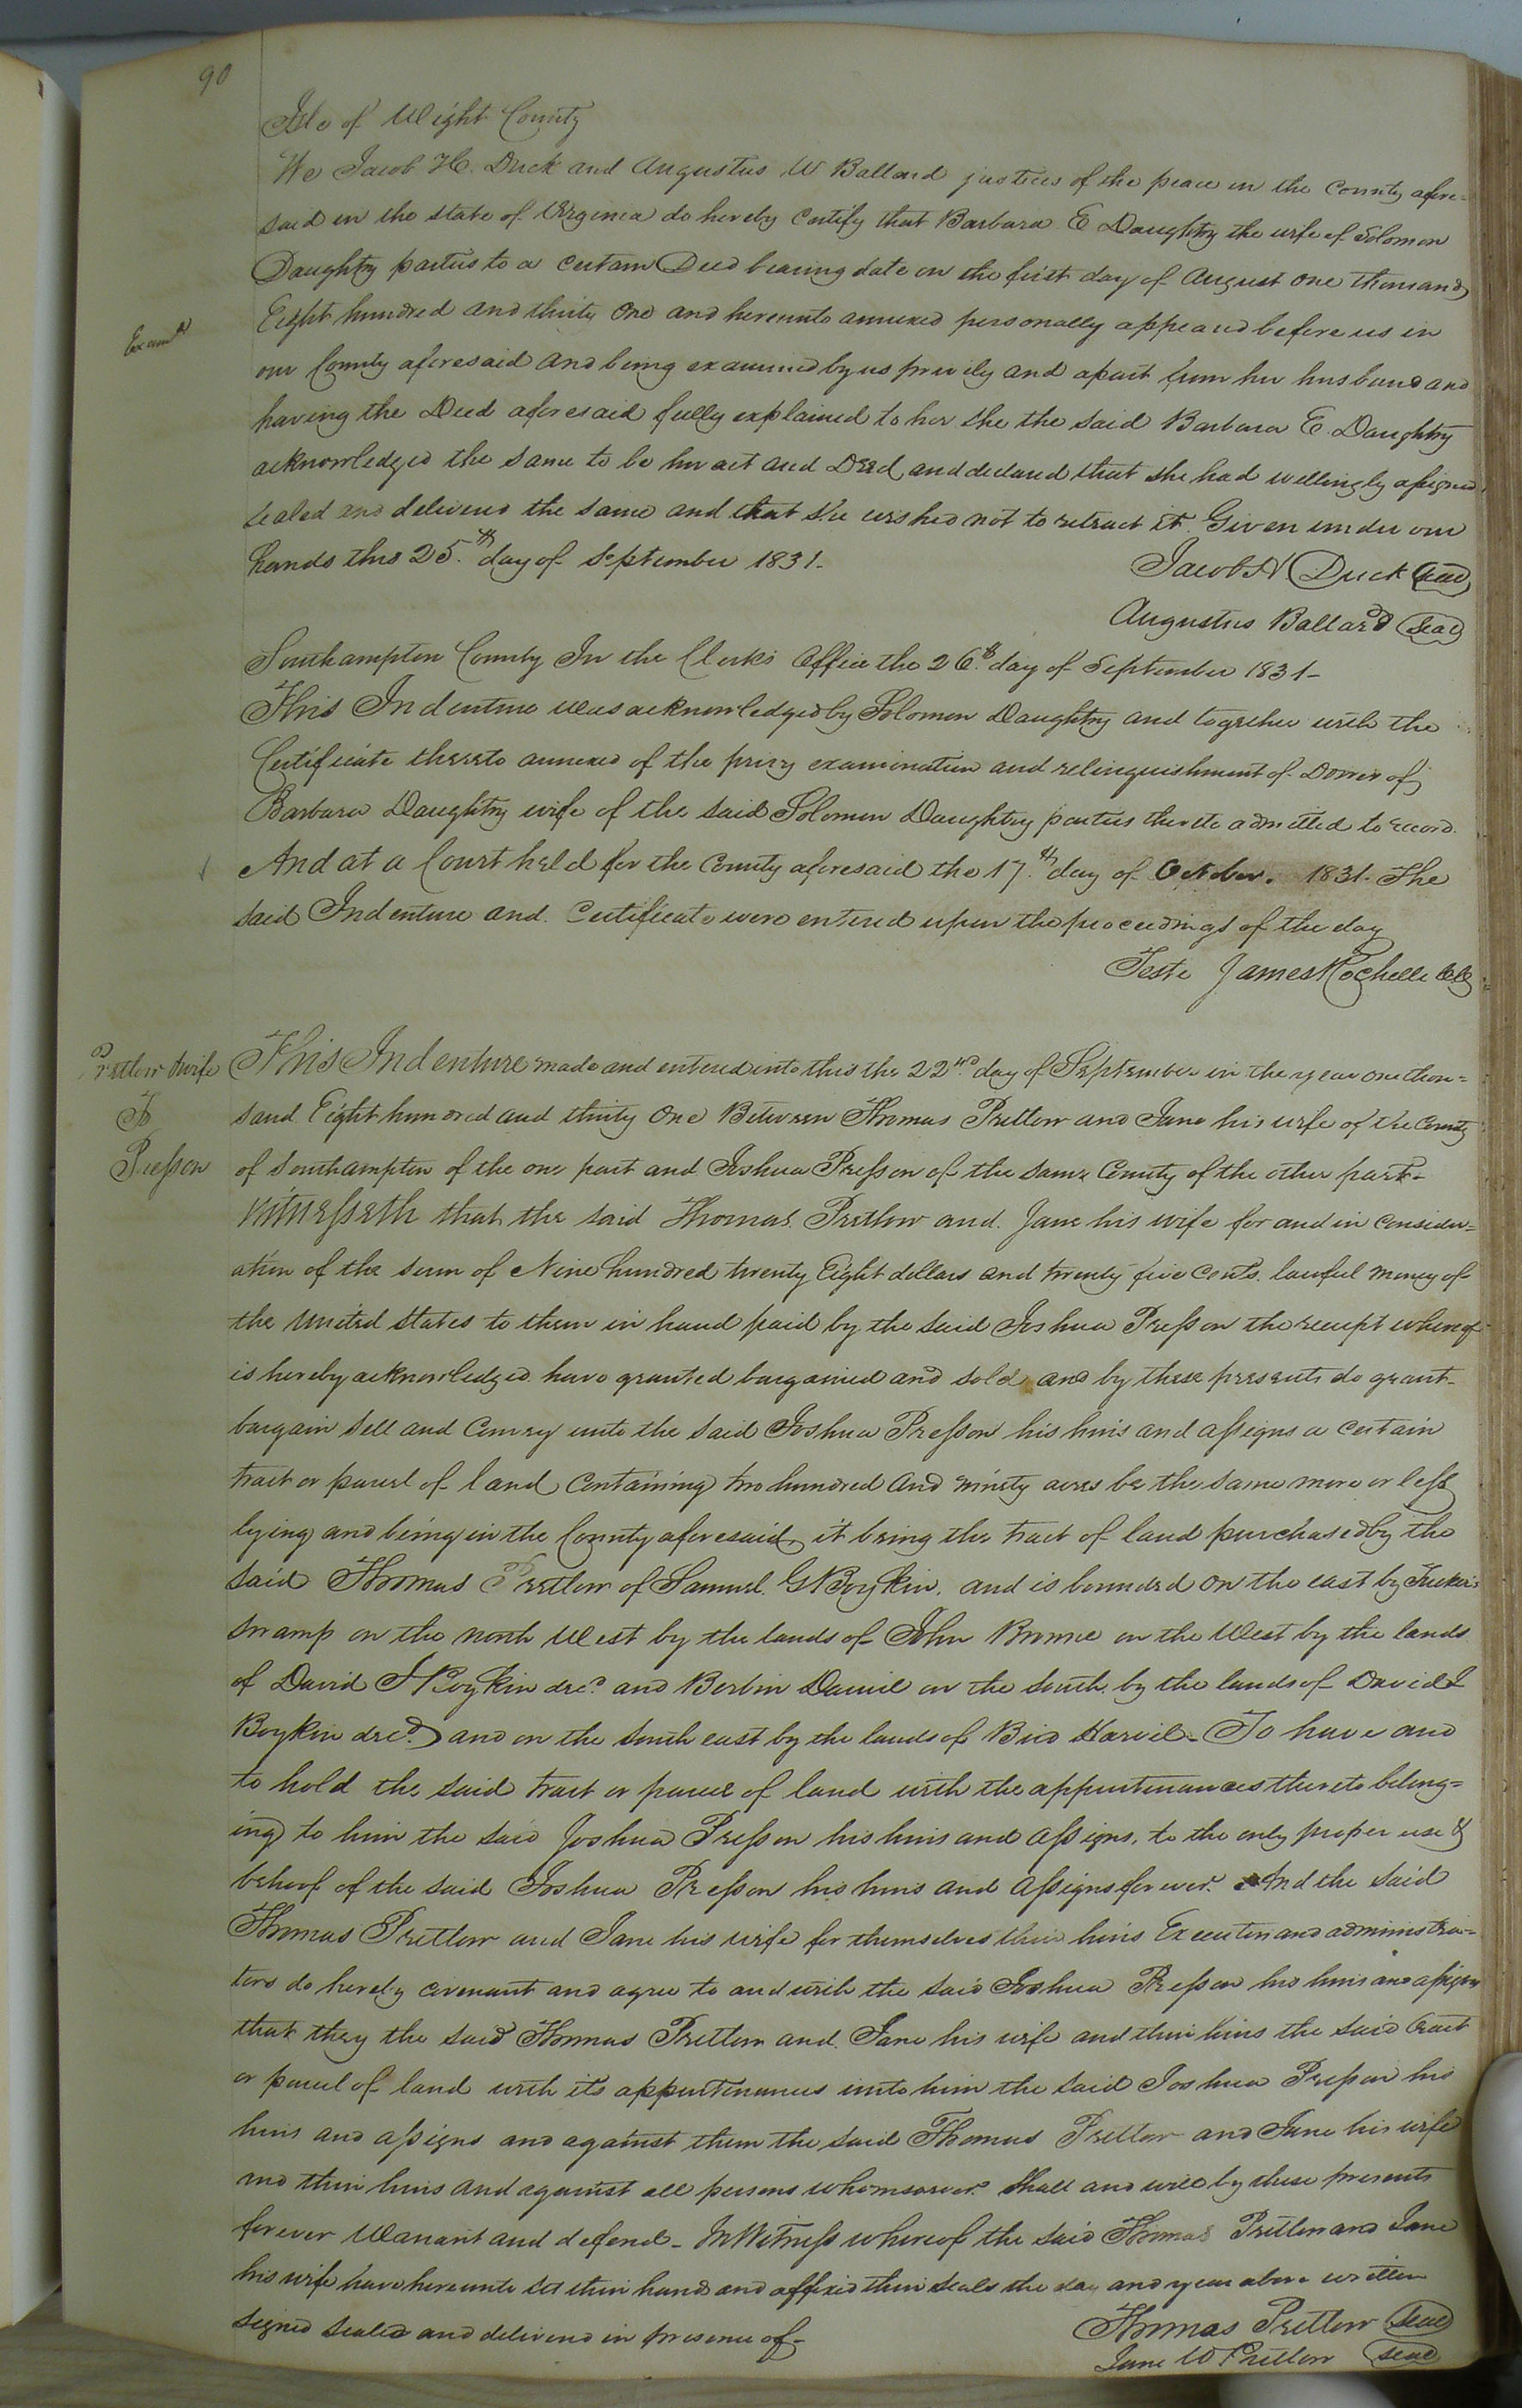 90
Isle of Wight County
We Jacob H. Duck and Augustus W Ballard justices of the peace in the County afore=
said in the state of Virginia do hereby Certify that Barbara E Daughtry the wife of Solomon
Daughtry parties to a Certain Deed bearing date on the first day of August one thousand
Eight hundred and thirty One and hereunto annexed personally appeared before us in
Examd
our County aforesaid and being examined by us privily and apart from her husband and
having the Deed aforesaid fully explained to her she the said Barbara E. Daughtry
acknowledged the same to be her act and Deed and declared that she had willingly assigned
sealed and delivered the same and that she wished not to retract it. Given under our
hands this 25.th day of September 1831.
Jacob H Duck Seal
Augustus Ballard Seal
Southampton County In the Clerks Office the 26.th day of September 1831-
This Indenture was acknowledged by Solomon Daughtry and together with the
Certificate thereto annexed of the privy examination and relinquishment of Dower of
Barbara Daughtry wife of the said Solomon Daughtry parties thereto admitted to record.
And at a Court held for the County aforesaid the 17.th day of October. 1831. The
said Indenture and Certificate were entered upon the proceedings of the day
Teste James Rochelle
Pretlow & wife
To
Presson
This Indenture made and entered into this the 22nd day of September in the year one thou=
sand Eight hundred and thirty One Between Thomas Pretlow and Jane his wife of the County
of Southampton of the one part and Joshua Presson of the same County of the other part-
Witnesseth that the said Thomas Pretlow and Jane his wife for and in consider=
ation of the sum of Nine hundred twenty Eight dollars and twenty five Cents lawful money of
the United States to them in hand paid by the said Joshua Presson the receipt whereof
is hereby acknowledged have granted bargained and sold and by these presents do grant-
bargain sell and Convey unto the said Joshua Presson his heirs and assigns a certain
tract or parcel of land Containing two hundred and ninety acres be the same more or less
lying and being in the County aforesaid, it being the tract of land purchased by the
said Thomas Pretlow of Samuel G Boykin, and is bounded on the east by Tucker's
swamp on the north West by the lands of John on the West by the lands
of David J Boykin decd and Berbin Daniel on the South by the lands of David J
Boykin decd. and on the south east by the lands of To have and
to hold the said tract or parcel of land with the appurtenances thereto belong=
ing to him the said Joshua Presson his heirs and Assigns, to the only proper use &
behoof of the said Joshua Presson his heirs and Assigns forever. And the said
Thomas Pretlow and Jane his wife for themselves their heirs Executors and administra=
tors do hereby covenant and agree to and with the said Joshua Presson his heirs and assigns
that they the said Thomas Pretlow and Jane his wife and their heirs the said tract
or parcel of land with its appurtenances unto him the said Joshua Presson his
heirs and assigns and against them the said Thomas Pretlow and Jane his wife
and their heirs and against all persons whomsoever shall and will by these presents
forever Warrant and defend- In Witness whereof the said Thomas Pretlow and Jane
his wife have hereunto set their hands and affixed their seals the day and year above written
signed sealed and delivered in presence of-
Thomas Pretlow Seal
Jane W Pretlow Seal